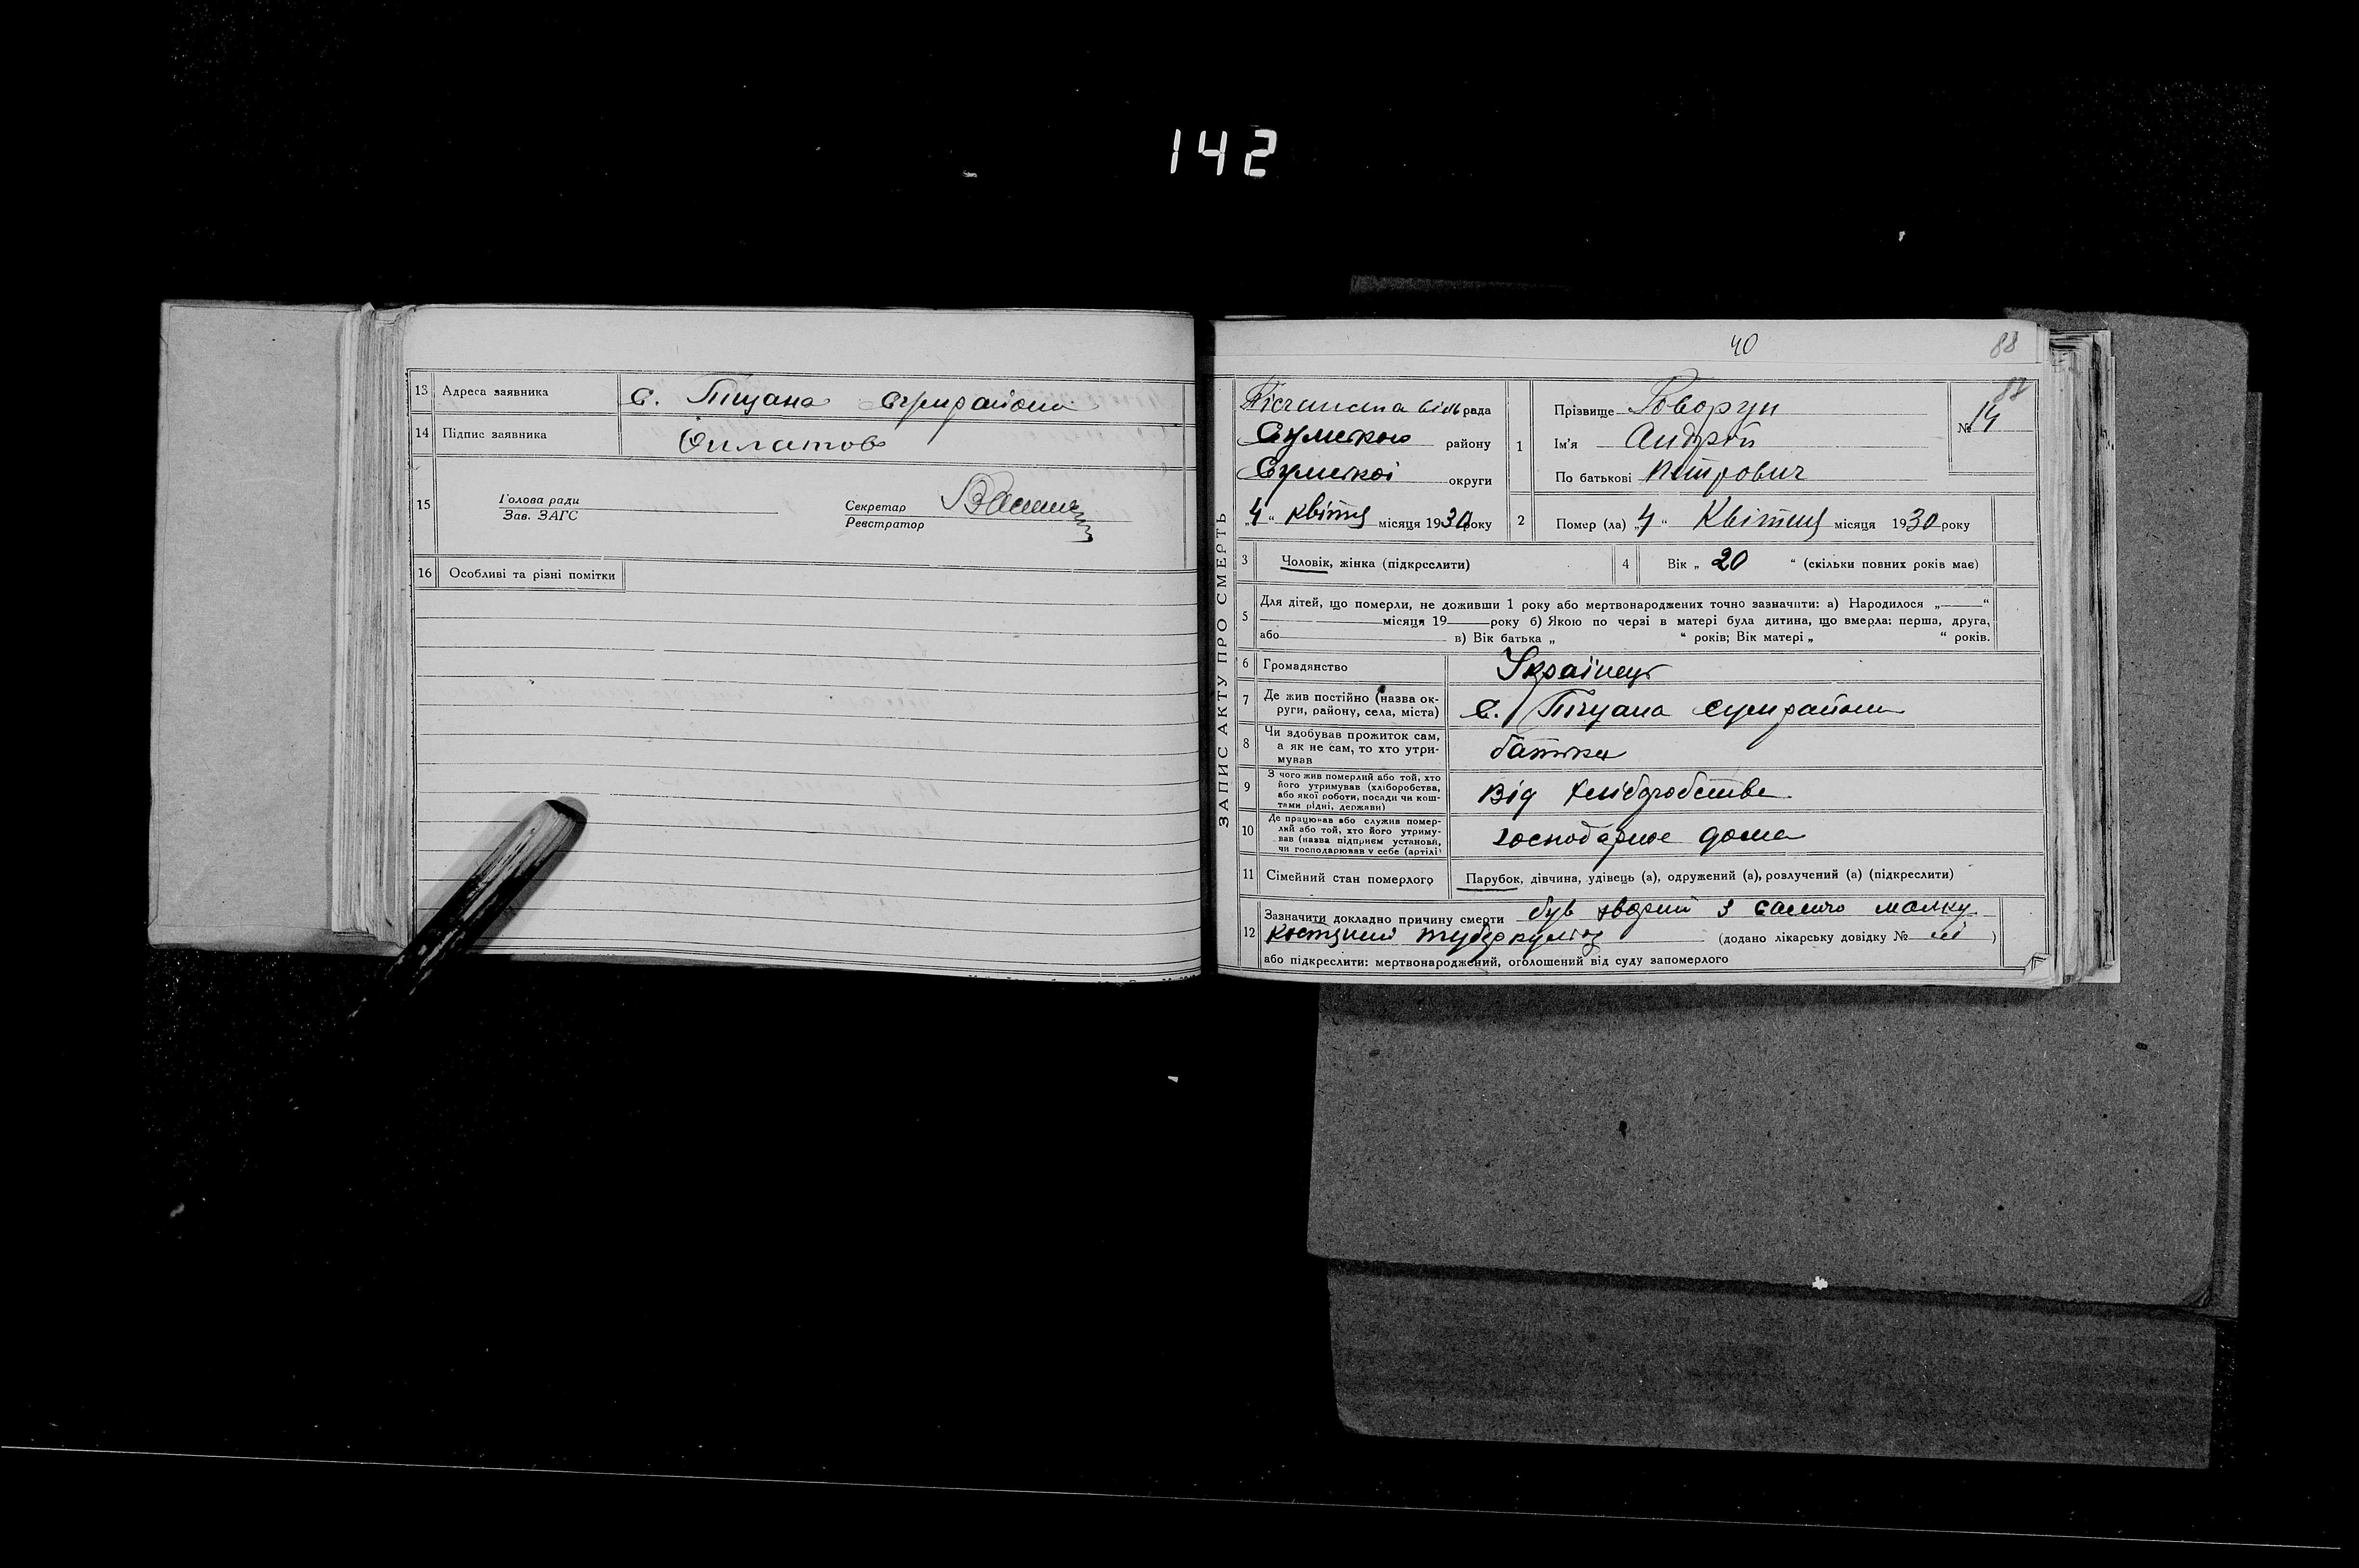 142
13 Адреса заявника с. Піщана Сумрайони
14 Підпис заявника
15 Голова ради
Зав. ЗАГС
Секретар
Реєстратор
16 Особливі та різні помітки
40
88
87
ЗАПИС АКТУ ПРО СМЕРТЬ
Піщанська сільрада
Сумського району
Сумської округи
„4“ квітня місяця 1930 року
1 Прізвище Говорун
Ім'я Андрій
По батькові Петрович
№ 14
2 Помер (ла) „4“ Квітня місяця 1930 року
3 Чоловік, жінка (підкреслити)
4 Вік „20“ (скільки повних років має)
5 Для дітей, що померли, не доживши 1 року або мертвонароджених точно зазначити: а) Народилося „ “
місяця 19 року б) Якою по черзі в матері була дитина, що вмерла: перша, друга,
або в) Вік батька „ “ років; Вік матері „ “ років.
6 Громадянство Українець
7 Де жив постійно (назва округи, району, села, міста) с. Піщана Сумрайони
8 Чи здобував прожиток сам, а як не сам, то хто утримував батько
9 З чого жив померлий або той, хто його утримував (хліборобства, або якої роботи, посади чи коштами рідні, держави) Від хліборобства
10 Де працював або служив померлий або той, хто його утримував (назва підприєм установи, чи господарював у себе (артілі) господарює дома
11 Сімейний стан померлого Парубок, дівчина, удівець (а), одружений (а), розлучений (а) (підкреслити)
12 Зазначити докладно причину смерти був хворий з самого малку
костяний туберкульоз (додано лікарську довідку № )
або підкреслити: мертвонароджений, оголошений від суду запомерлого